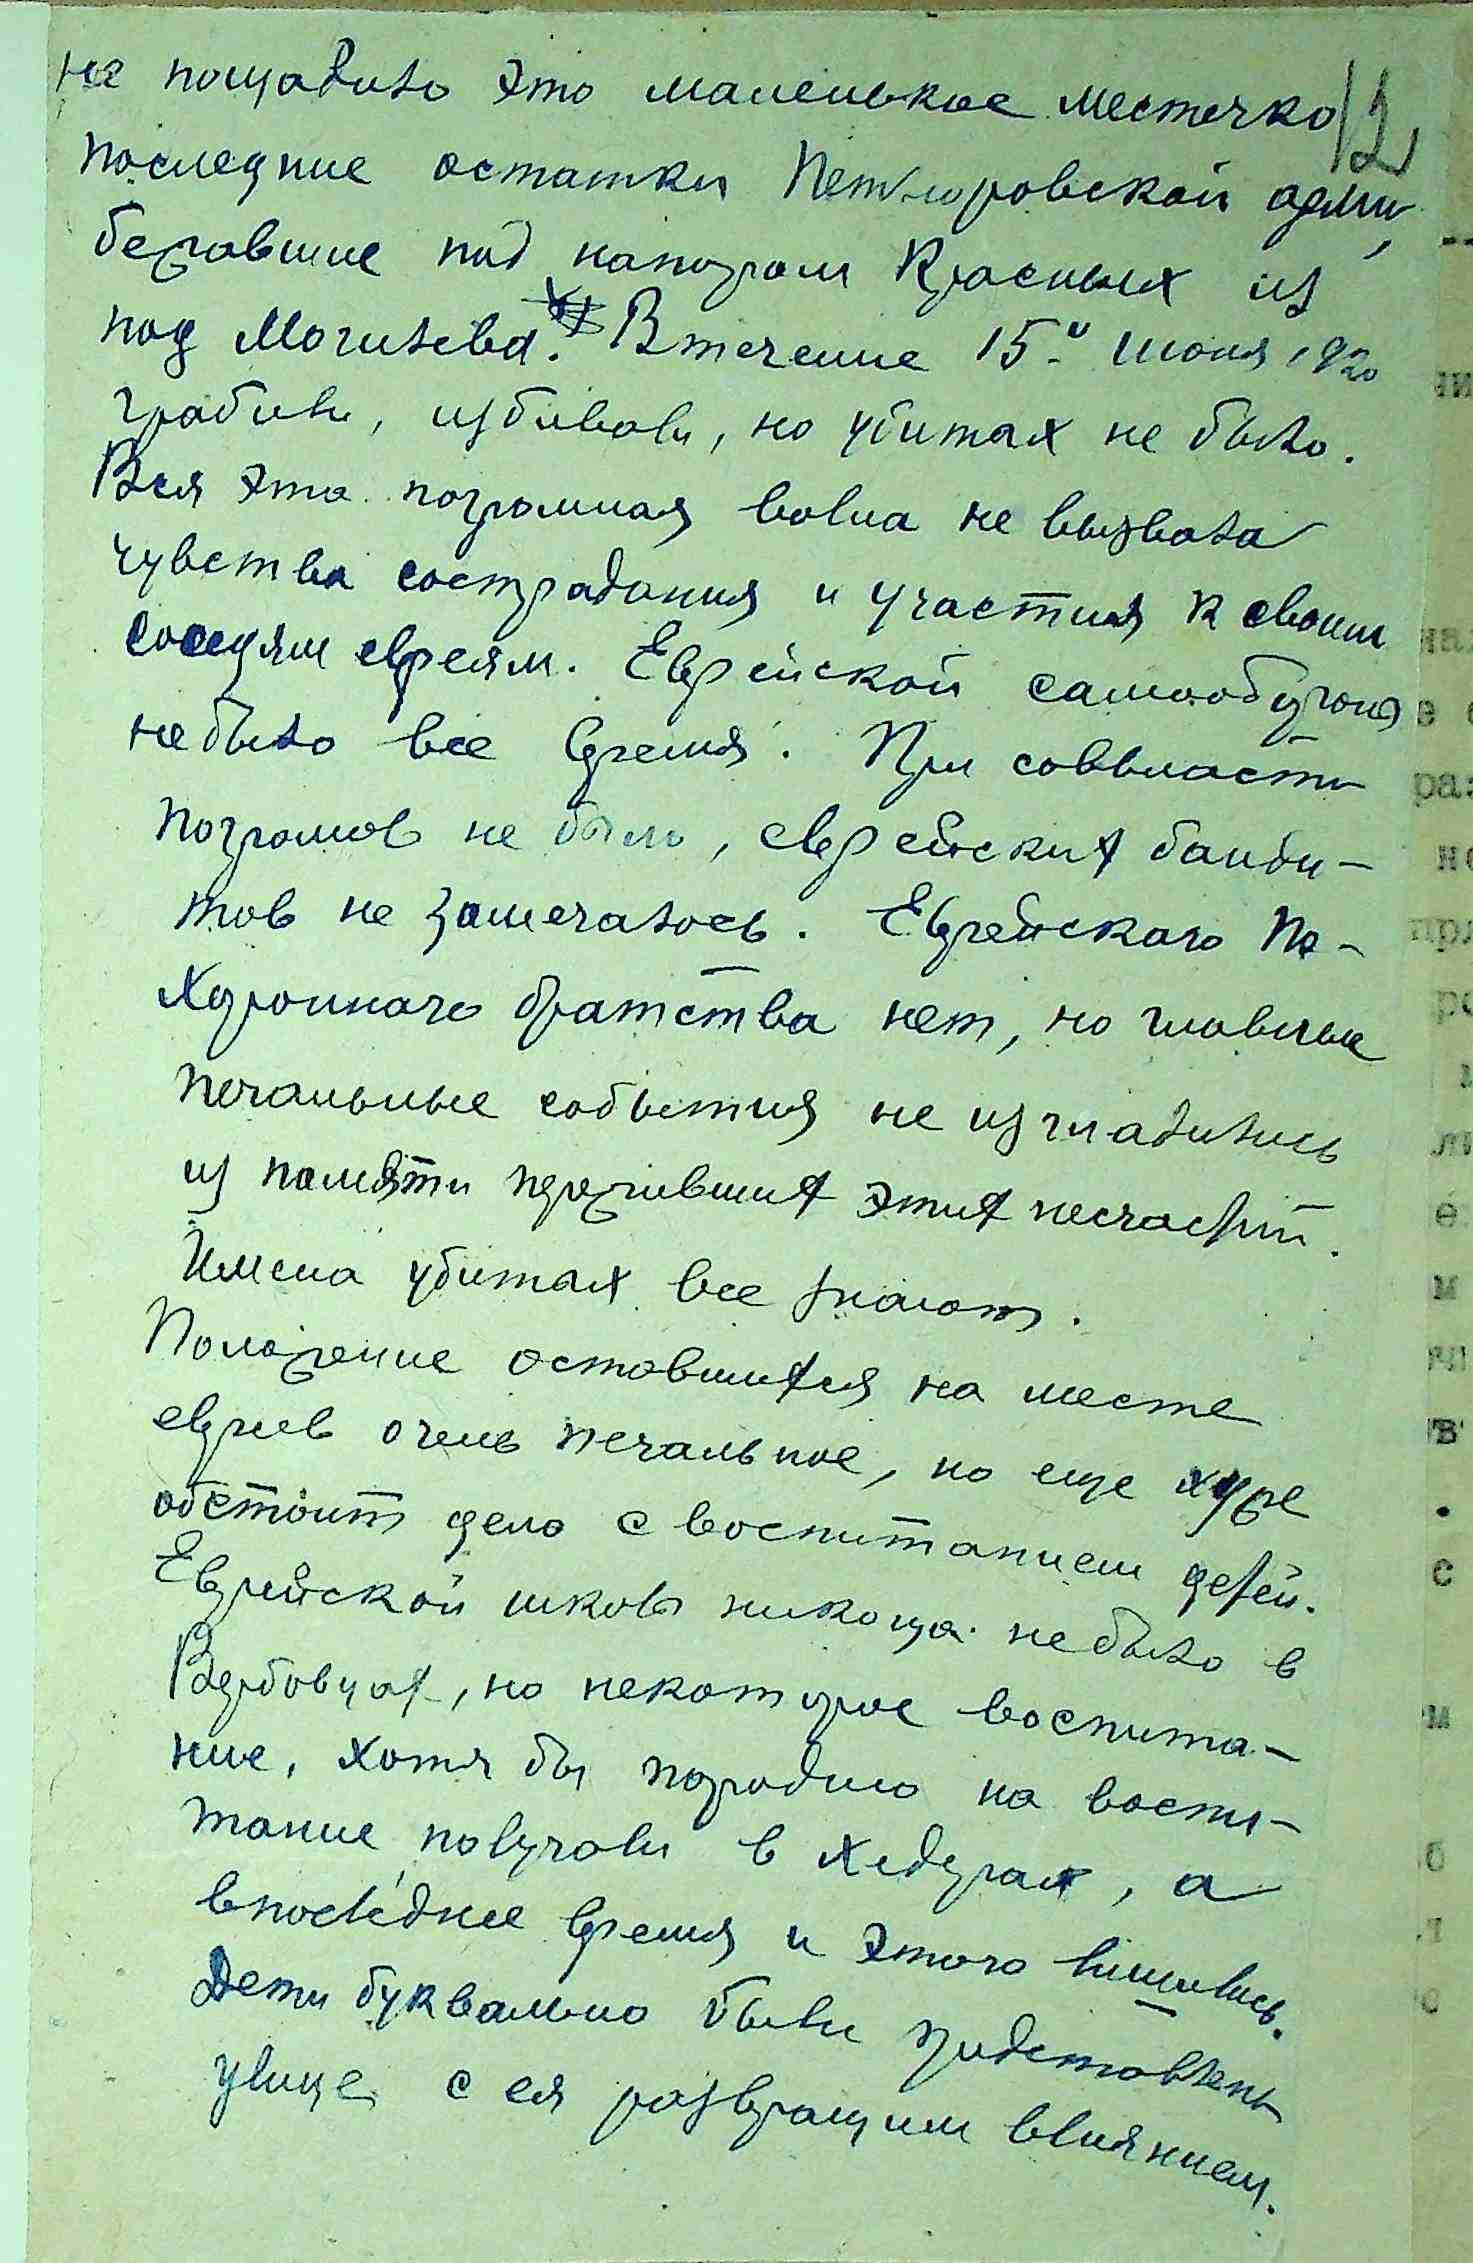 не пощадило это маленькое местечко 12
последние остатки Петлюровской арми,
бежавшие под напором Красных из
под Могилева. В течение 15-и июня 1920
грабили, избивали, но убитых не было.
Вся эта погромная волна не вызвала
чувства сострадания и участия к своим
соседям евреям. Еврейской самообороны
не было все время. При соввласти
погромов не было, еврейских банди-
тов не замечалось. Еврейскаго По-
хороннаго братства нет, но главные
печальные события не изгладились
из памяти переживших этих несчастий.
Имена убитых все знают.
Положение оставшихся на месте
евреев очень печальное, но еще хуже
обстоит дело с воспитанием детей.
Еврейской школы никогда не было в
Вербовцах, но некоторое воспита-
ние, хотя бы пародию на воспи-
тание получали в хедерах, а
в последнее время и этого лишились.
Дети буквально были предоставлены
улице с ея развращим влиянием.